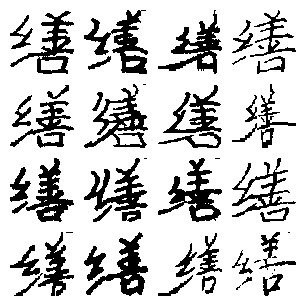 缮缮缮缮
缮缮缮缮
缮缮缮缮
缮缮缮缮